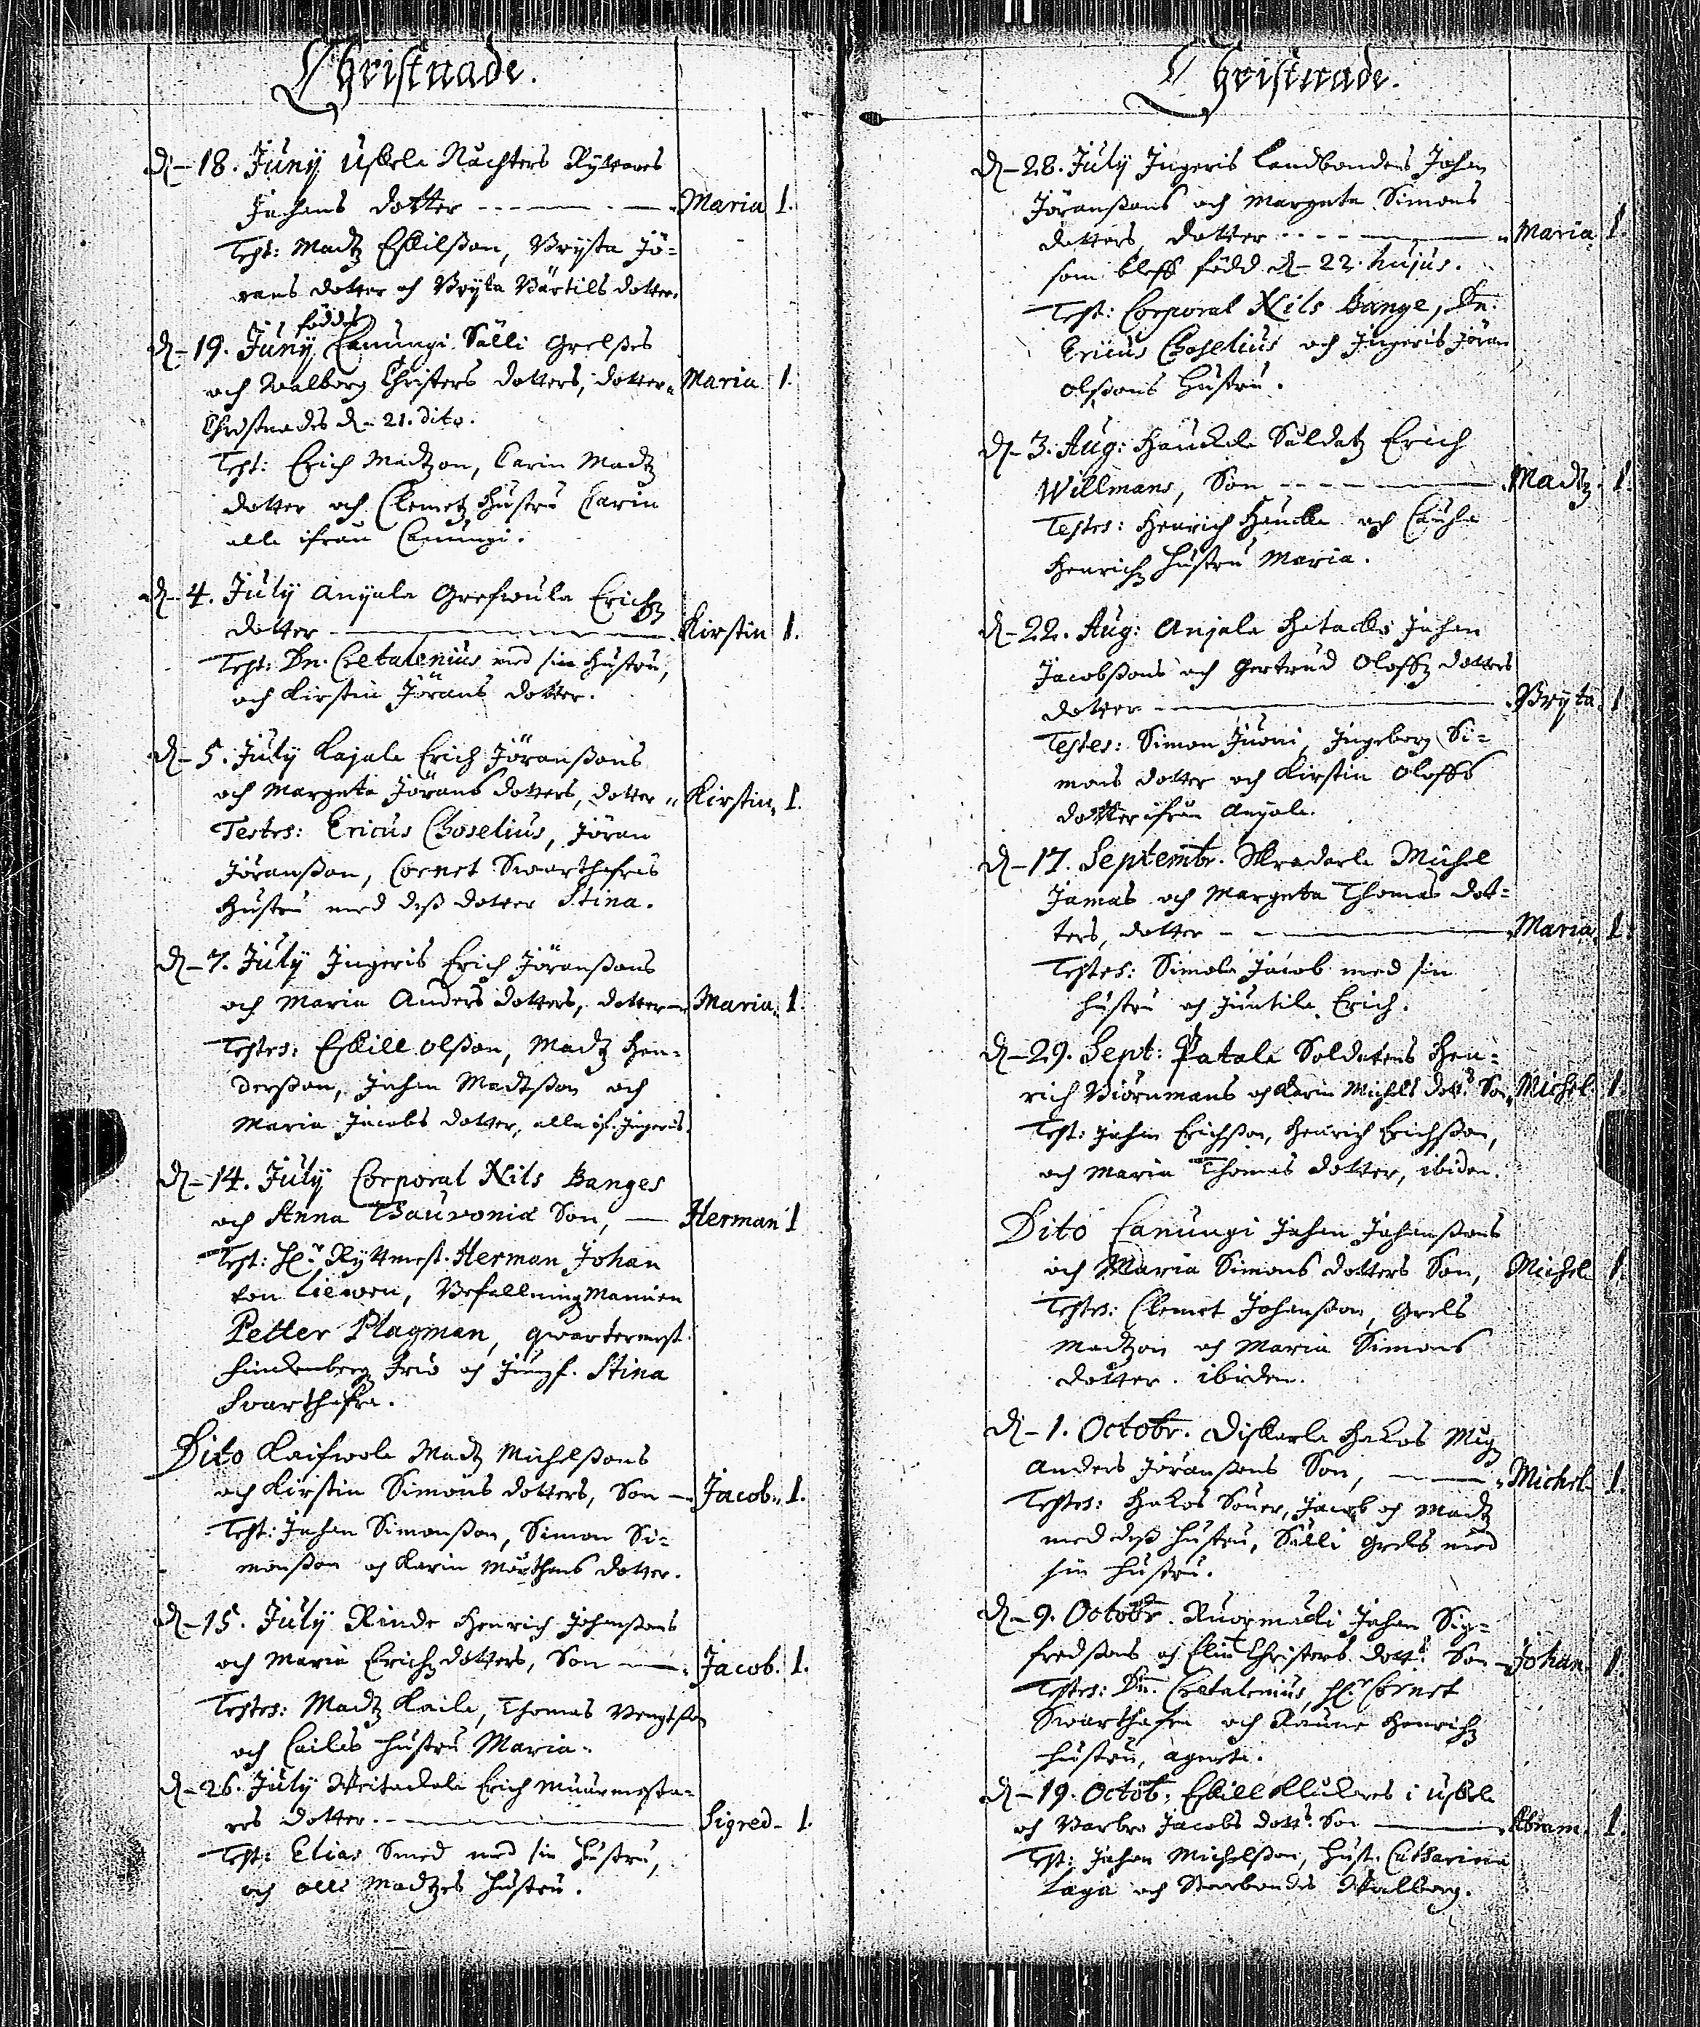 Christnade.
d. 18. Junÿ Uskela Nächters Rÿttares
Johans dotter Maria 1.
Test: Madtz Eskilsson, Brÿta Jö-
rans dotter och Brÿta Bärtils dotter.
föddes
d. 19. Junÿ Canungi Sälli Grelsses
och Walborg Christers dotters, dotter Maria 1.
Christnades d. 21. dito.
Test: Erich Madtzon, Carin Madtz
dotter och Clemetz hustru Carin
alla ifrån Canungi.
d. 4. Julÿ Anjala Erichz
dotter Kirstin 1.
Test: Dn. Cretalenius med sin hustru,
och Kirstin Jörans dotter.
d. 5. Julÿ Kajala Erich Jöranssons
och Margeta Jörans dotters, dotter Kirstin 1.
Testes: Ericus Choselius, Jöran
Jöransson, Cornet Swarthafres
hustru med dess dotter Stina.
d. 7. Julÿ Ingeris Erich Jöranssons
och Maria Anders dotters, dotter Maria 1.
Testes: Eskill Olsson, Madtz Hen-
dersson, Johan Madtsson och
Maria Jacobs dotter, alla if. Ingeris.
d. 14. Julÿ Corporal Nils Banges
och Anna Son, Herman 1
Test: Hr. Rÿttmest. Herman Johan
von Liewen, Befallningzmannen
Petter Plagman, qwartermest.
och Jungf. Stina
Swarthafra.
Dito Madtz Michelssons
och Kirstin Simons dotters, Son Jacob 1.
Test: Johan Simonsson, Simon Si-
monsson och Karin Mårthens dotter.
d. 15. Julÿ Rinde Henrich Johanssons
och Maria Erichz dotters, Son Jacob. 1.
Testes: Madtz Kaila, Thomas Bengtsson
och Cailas hustru Maria.
d. 26. Julÿ Erich Muurmesta-
res dotter. Sigred 1.
Test: Elias Smed med sin hustru,
och Madtzes hustru.
Christnade.
d. 28. Julÿ Ingeris Landbondens Johan
Jöranssons och Margeta Simons
dotters, dotter Maria 1.
som bleff född d. 22. hujus.
Test: Corporal Nils Bange, Dn.
Ericus Choselius och Ingeris Jöran
Olssons hustru.
d. 3. Aug: Soldatz Erich
Willmans, Son Madtz 1.
Testes: Henrich och
Henrichz hustru Maria.
d. 22. Aug: Anjala Johan
Jacobssons och Gertrud Oloffz dotters
dotter Brÿta 1
Testes: Simon Juoni, Ingeborg Si-
mons dotter och Kirstin Oloffs
dotter ifrån Anjala.
d. 17. Septembr. Michel
och Margeta Thomas dot-
ters, dotter Maria 1.
Testes: Simola Jacob med sin
hustru och Juntila Erich.
d. 29. Sept: Patala Soldatens Hen-
rich Biörnmans och Karin Michels dott. Son Michel 1.
Test: Johan Erichsson, Henrich Erichsson,
och Maria Thomas dotter, ibidem.
Dito Canungi Johan Johanssons
och Maria Simons dotters Son, Michel 1.
Testes: Clemet Johansson, Grels
Madtzon och Maria Simons
dotter. ibidem.
d. 1. Octobr.
Anders Jöranssons Son, Michel 1.
Testes: Jacob och Madtz
med dess hustru, Sälli Grels med
sin hustru.
d. 9. Octobr. Ruopmäcki Johan Sig-
fredssons och Elin Christers dott. Son Johan 1.
Testes: Dn. Cretalenius, Hr. Cornet
Swarthafra och Henrichz
hustru, Agneta.
d. 19. Octob: Eskill i Uskela
och Barbro Jacobs dotts. Son Abram 1.
Test: Johan Michelsson, hust: Catharina
Laga och Walborg.